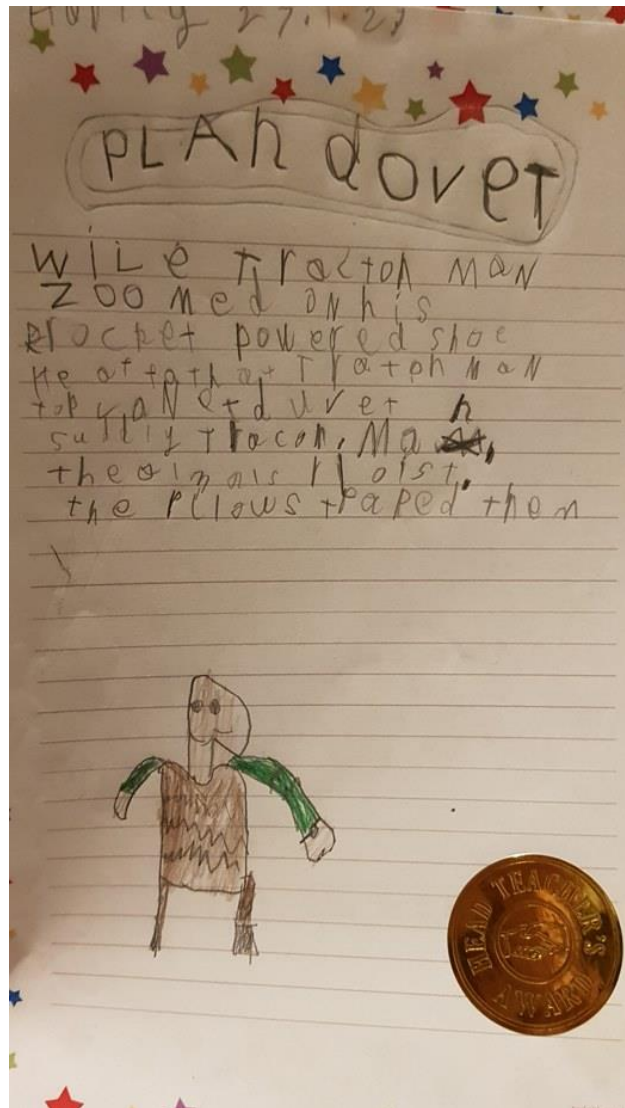 27.1.23
PLAh dovet
wiLe Tracton MaN
Zoomed on his
Rocket powered shoe
He at tathat Tratoh MaN
top, aN et d uvet
sudliy Tracon. Man,
the aimais
the Pilows traped them
HEAD TEACHER'S
AWARD